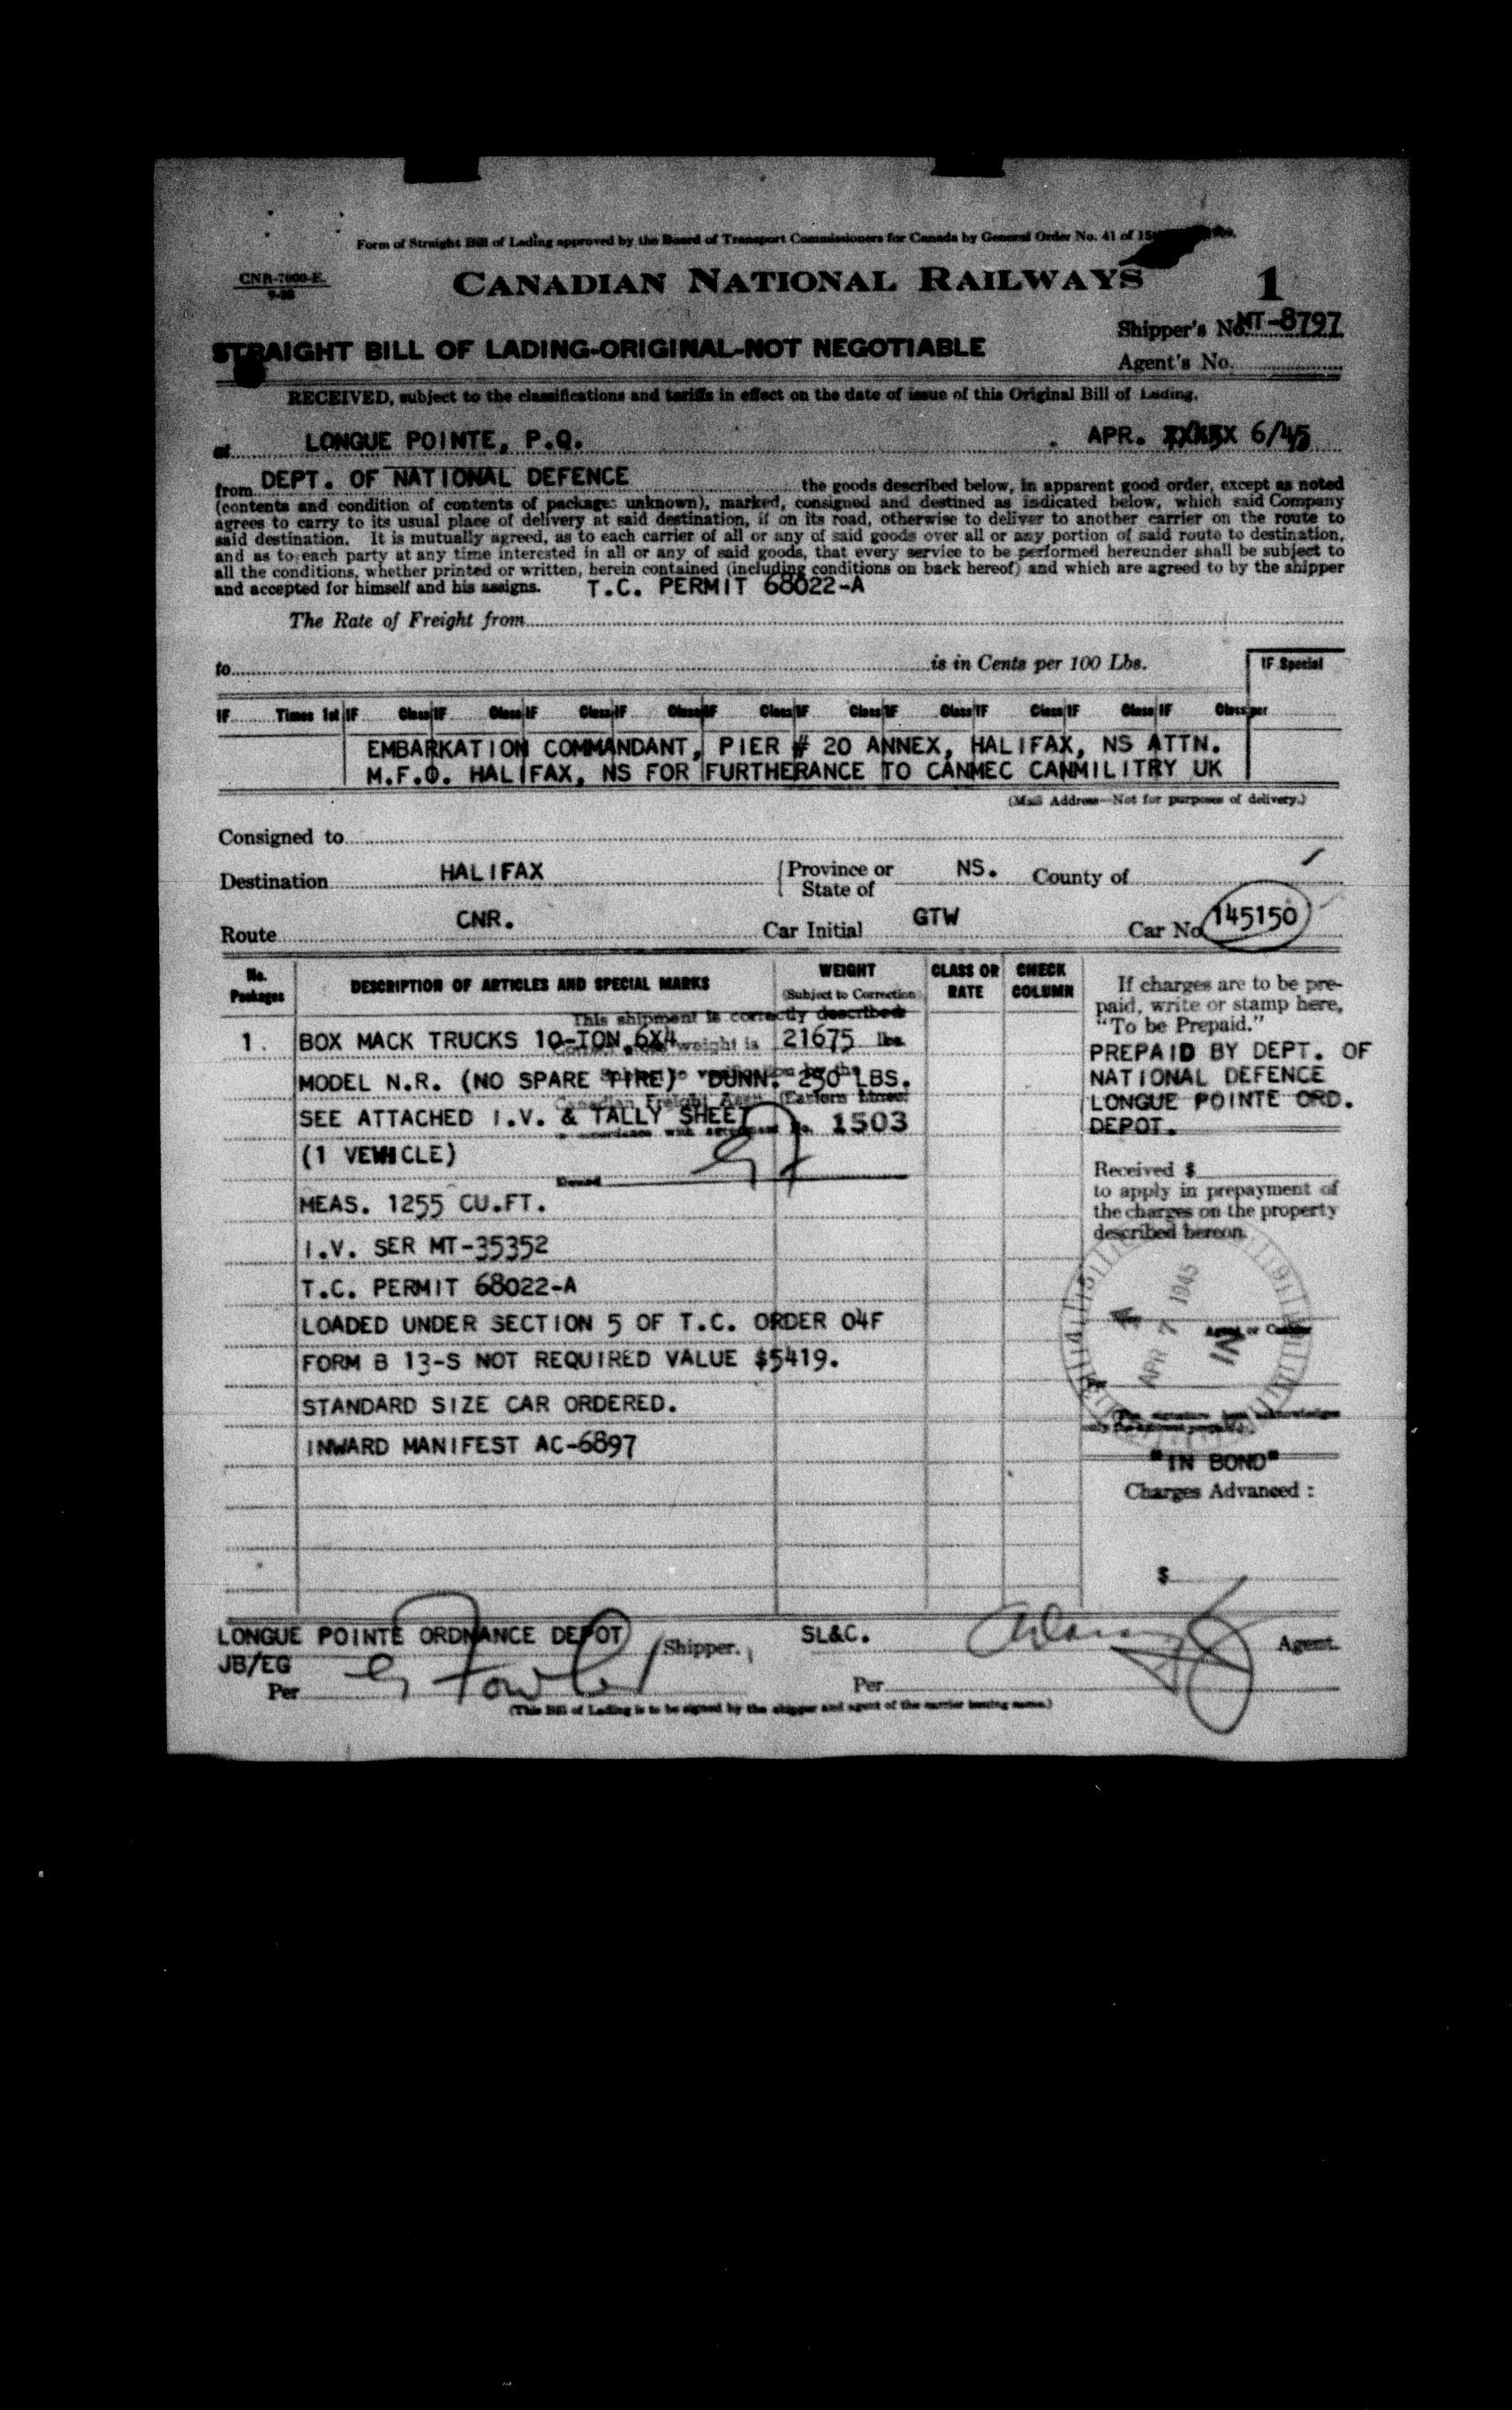 Form of Straight Bill of Lading approved by the Board of Transport Commissioners for Canada by General Order No. 41 of
CNR-7000-E.
CANADIAN NATIONAL RAILWAYS
1
Shipper's No. MT-8797
STRAIGHT BILL OF LADING-ORIGINAL-NOT NEGOTIABLE
Agent's No.
RECEIVED, subject to the classifications and tariffs in effect on the date of issue of this Original Bill of Lading,
at LONGUE POINTE, P.Q. APR. 6/45
from DEPT. OF NATIONAL DEFENCE the goods described below, in apparent good order, except as noted
(contents and condition of contents of packages unknown), marked, consigned and destined as indicated below, which said Company
agrees to carry to its usual place of delivery at said destination, if on its road, otherwise to deliver to another carrier on the route to
said destination. It is mutually agreed, as to each carrier of all or any of said goods over all or any portion of said route to destination,
and as to each party at any time interested in all or any of said goods, that every service to be performed hereunder shall be subject to
all the conditions, whether printed or written, herein contained (including conditions on back hereof) and which are agreed to by the shipper
and accepted for himself and his assigns. T.C. PERMIT 68022-A
The Rate of Freight from
to is in Cents per 100 Lbs.
IF Special
IF Times 1st IF Class IF Class IF Class IF Class IF Class IF Class IF Class IF Class IF Class per
EMBARKATION COMMANDANT, PIER # 20 ANNEX, HALIFAX, NS ATTN.
M.F.O. HALIFAX, NS FOR FURTHERANCE TO CANMEC CANMILITRY UK
(Mail Address—Not for purposes of delivery.)
Consigned to
Destination HALIFAX Province or State of NS. County of
Route CNR. Car Initial GTW Car No 145150
No. Packages
DESCRIPTION OF ARTICLES AND SPECIAL MARKS
WEIGHT (Subject to Correction)
CLASS OR RATE
CHECK COLUMN
If charges are to be pre-
paid, write or stamp here,
"To be Prepaid."
PREPAID BY DEPT. OF
NATIONAL DEFENCE
LONGUE POINTE ORD.
DEPOT.
This shipment is correctly described
1 BOX MACK TRUCKS 10-TON 6X4 weight is 21675 lbs.
MODEL N.R. (NO SPARE TIRE) DUNN. 250 LBS.
Canadian Freight Assn (Eastern Lines)
SEE ATTACHED I.V. & TALLY SHEET
in accordance with agreement No. 1503
(1 VEHICLE)
MEAS. 1255 CU.FT.
I.V. SER MT-35352
T.C. PERMIT 68022-A
LOADED UNDER SECTION 5 OF T.C. ORDER 04F
FORM B 13-S NOT REQUIRED VALUE $5419.
STANDARD SIZE CAR ORDERED.
INWARD MANIFEST AC-6897
Received $
to apply in prepayment of
the charges on the property
described hereon.
APR 7 1945
IN
Agent or Cashier
Per
"IN BOND"
Charges Advanced :
$
LONGUE POINTE ORDNANCE DEPOT Shipper. SL&C. Agent.
JB/EG
Per G Fowler Per
(This Bill of Lading is to be signed by the shipper and agent of the carrier issuing same.)